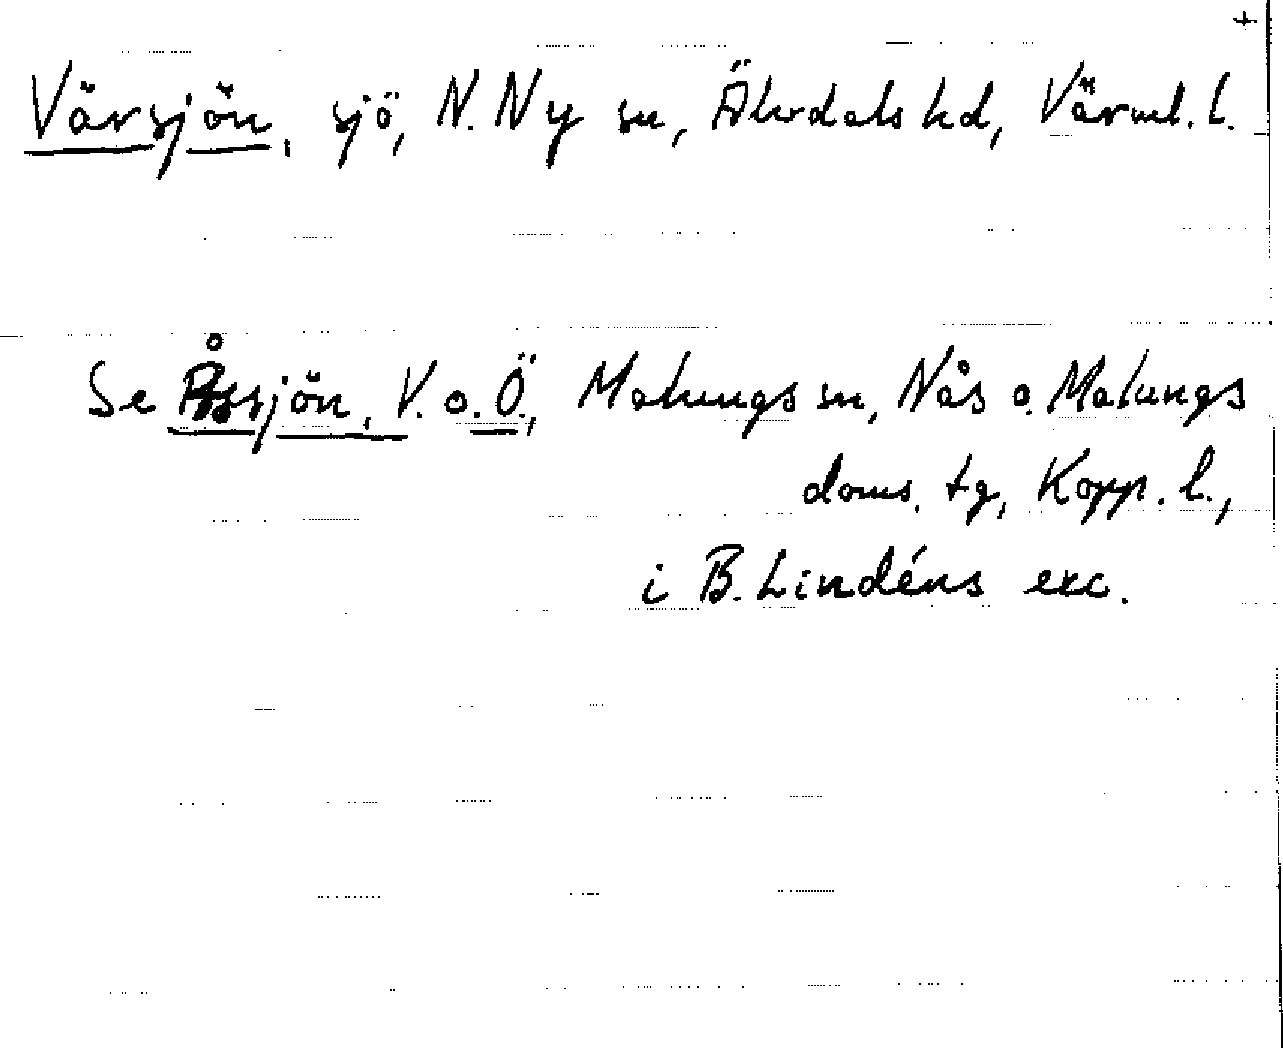 +
Värsjön, sjö, N. Ny sn, Älvdals hd, Värml. l.
Se Åssjön, V. o. Ö., Malungs sn, Nås o. Malungs
doms. tg, Kopp. l.,
i B. Lindéns exc.